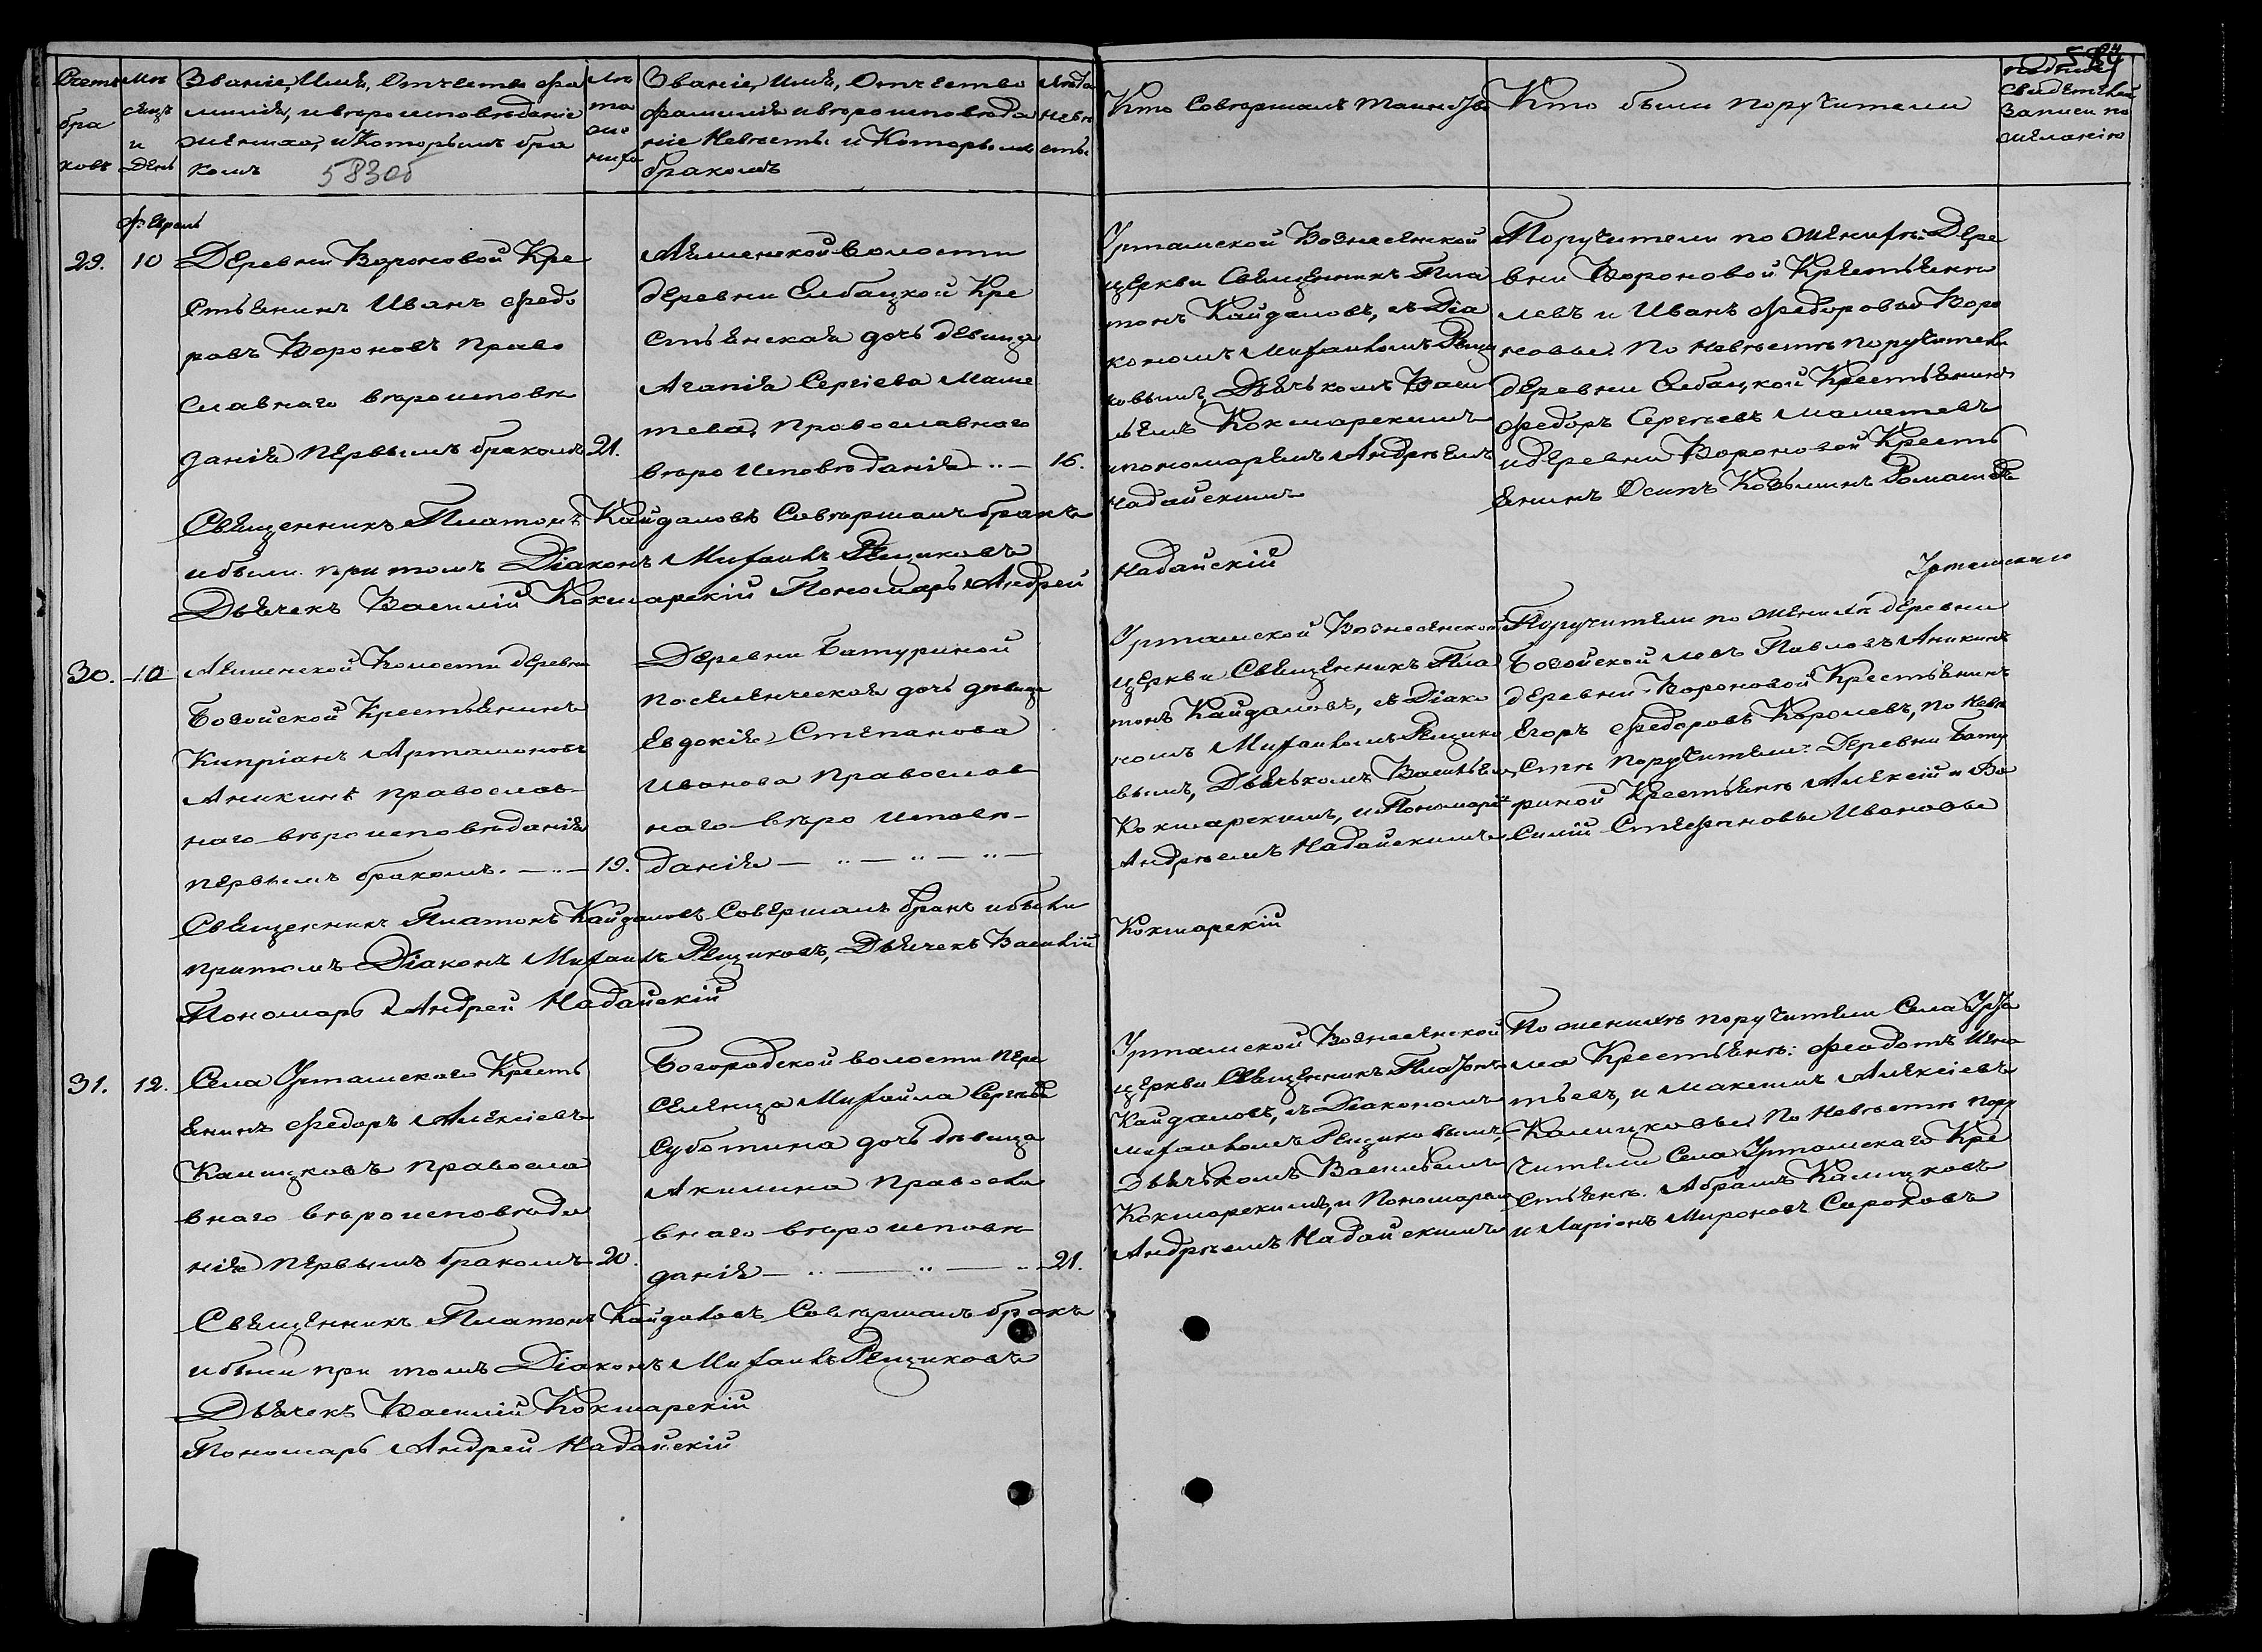 584
Счетъ
бра
ковъ
Мѣ
сяцъ
и
День
Званіе, Имя, Отчество фа
милія, и вѣроисповѣданіе
жениха, и Которымъ бра
комъ 58300
Лѣ
та
же
ниха
Званіе, имя, Отчество
фамилія и вѣроисповѣда
ніе Невѣсты и Которымъ
бракомъ
Лѣта
невѣ
сты
Кто Совершалъ таинство
Кто были поручители
подписъ
свидѣтелей
записи по
желанію
29. 10
Деревни Вороновой Кре
стьянинъ Иванъ Федо
ровъ Вороновъ право
славнаго вѣроисповѣ
данія первымъ бракомъ 21.
волости
деревни Елбацкой Кре
стьянская дочь дѣвица
Агапія Сергіева Маме
тева, православнаго
вѣро исповѣданія 16.
Уртамской Вознесенской
церкви Священникъ Пла
тонъ Кайдаловъ, съ Діа
кономъ Михаиломъ Рещи
ковымъ, Дьячькомъ Васи
льемъ Кокшарскимъ
и пономаремъ Андреемъ
Надайскимъ
Поручители по женихѣ: Дере
вни Вороновой Крестьяне
левъ и Иванъ Федоровы Воро
новы. По Невѣстѣ поручители
деревни Елбацкой Крестьянинъ
Федоръ Сергѣевъ Маметевъ
и деревни Вороновой Кресть
янинъ Осипъ Козьминъ
Священникъ Платонъ Кайдаловъ Совершалъ бракъ
и были при томъ Діаконъ Михаилъ Рещиковъ
Дьячекъ Василій Кокшарскій Пономарь Андрей
Надайскій
30. 10
Волости деревни
Бобойской Крестьянинъ
Кипріанъ Артамоновъ
Аникинъ православ
наго вѣроисповѣданія
первымъ бракомъ. 19.
Деревни Батуриной
поселенческая дочь дѣвица
Евдокія Степанова
Иванова православ
наго вѣро исповѣ
данія
Уртамской Вознесенской
церкви Священникъ Пла
тонъ Кайдаловъ, съ Діако
номъ Михаиломъ Рещико
вымъ, Дьячькомъ Васильемъ
Кокшарскимъ, и Пономаремъ
Андреемъ Надайскимъ
Поручители по женихѣ деревни
Бобойской левъ Павловъ Аникинъ
деревни Вороновой Крестьянинъ
Егоръ Федоровъ Королевъ, по Невѣ
стѣ поручители: Деревни Бату
риной Крестьяне Алексій и Ва
силій Стефановы Ивановы
Священникъ Платонъ Кайдаловъ Совершалъ бракъ и были
притомъ Діаконъ Михаилъ Рещиковъ, Дьячекъ Василій
Кокшарскій
Пономарь Андрей Надайскій
31. 12.
Села Уртамскаго Кресть
янинъ Федоръ Алексіевъ
Калицковъ правосла
внаго вѣроисповѣда
нія первымъ бракомъ 20.
Богородской волости пере
селенца Михаила Сергѣева
Суботина дочь дѣвица
Акилина Правосла
внаго вѣроисповѣ
данія 21.
Уртамской Вознесенской
церкви Священникъ Платонъ
Кайдаловъ, съ Діакономъ
Михаиломъ Рещиковымъ,
Дьячькомъ Васильемъ
Кокшарскимъ, и Пономаремъ
Андреемъ Надайскимъ
По женихѣ поручители Села Урта
ма Крестьяне: Феодотъ Игна
тьевъ, и Максимъ Алексіевъ
Калицковы. По Невѣстѣ пору
чители Села Уртамскаго Кре
стьяне. Абрамъ Калицковъ
и Ларіонъ Мироновъ Сороковъ
Священникъ Платонъ Кайдаловъ Совершалъ бракъ
и были при томъ Діаконъ Михаилъ Рещиковъ
Дьячекъ Василій Кокшарскій
Пономарь Андрей Надайскій